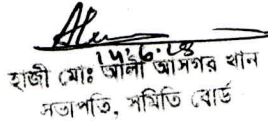 ১৭.৬.২৪
হাজী মোঃ আলী আসগর খান
সভাপতি, সমিতি বোর্ড